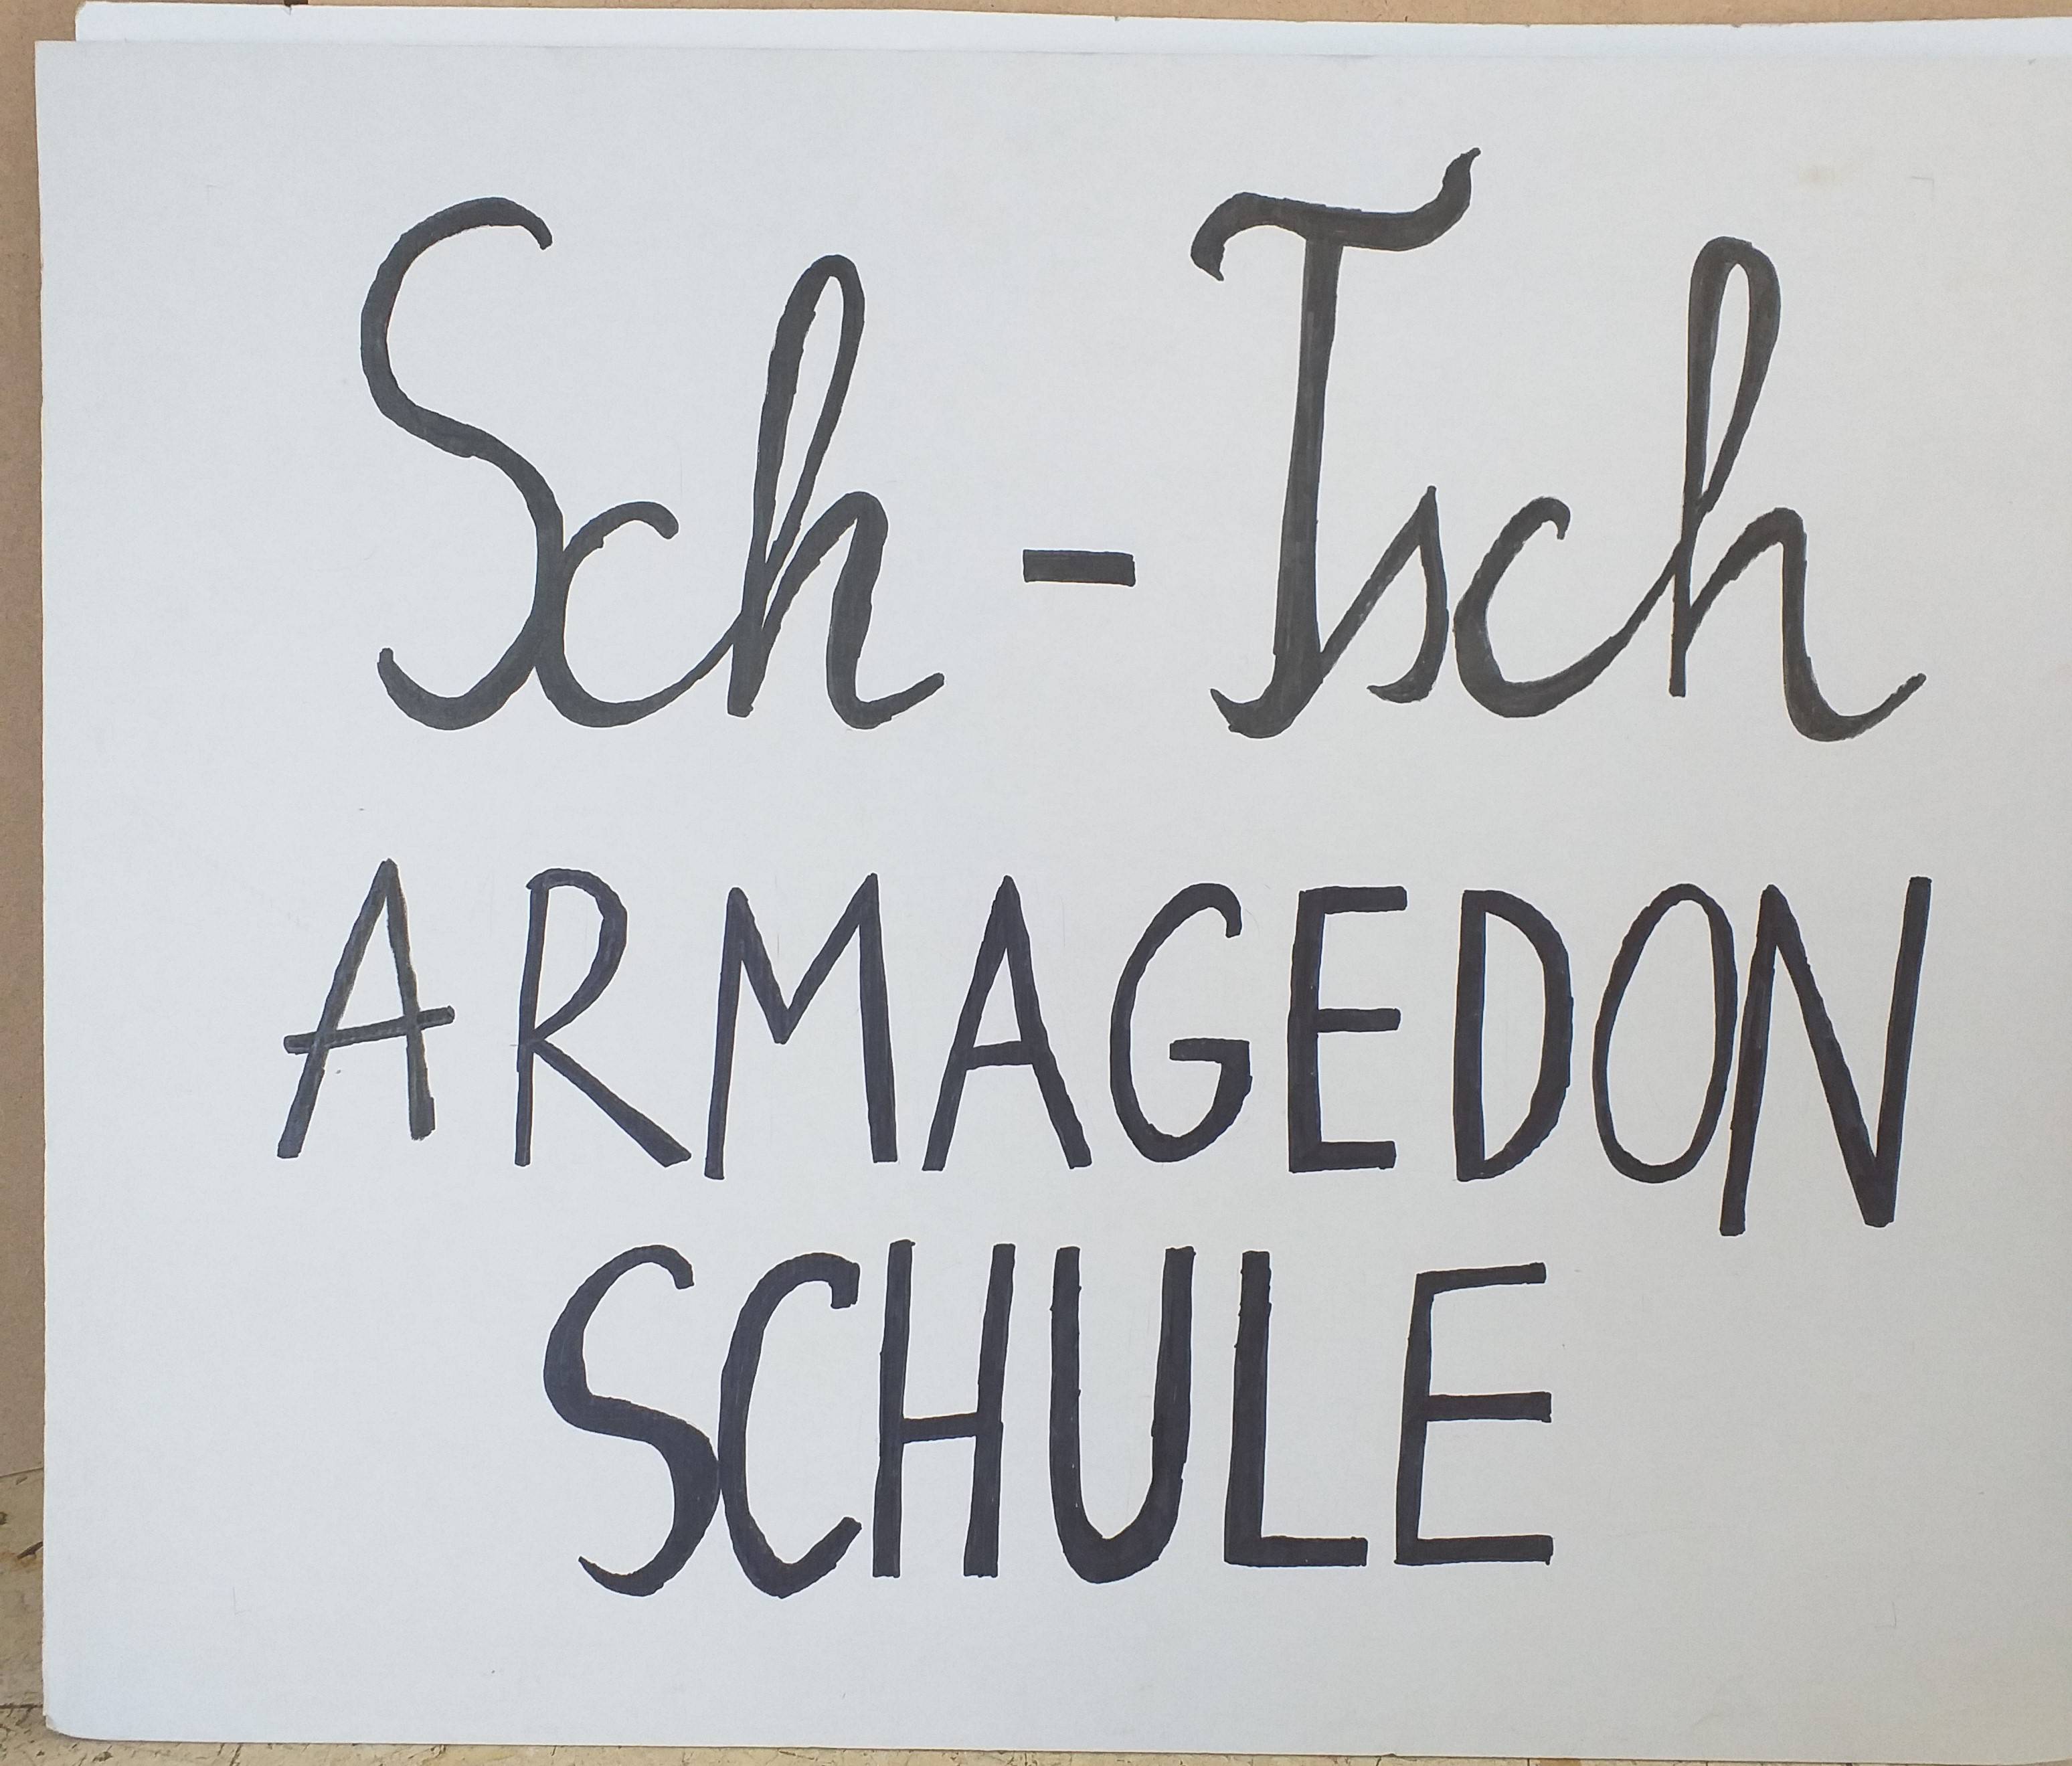 Sch - Tsch
ARMAGEDON
SCHULE